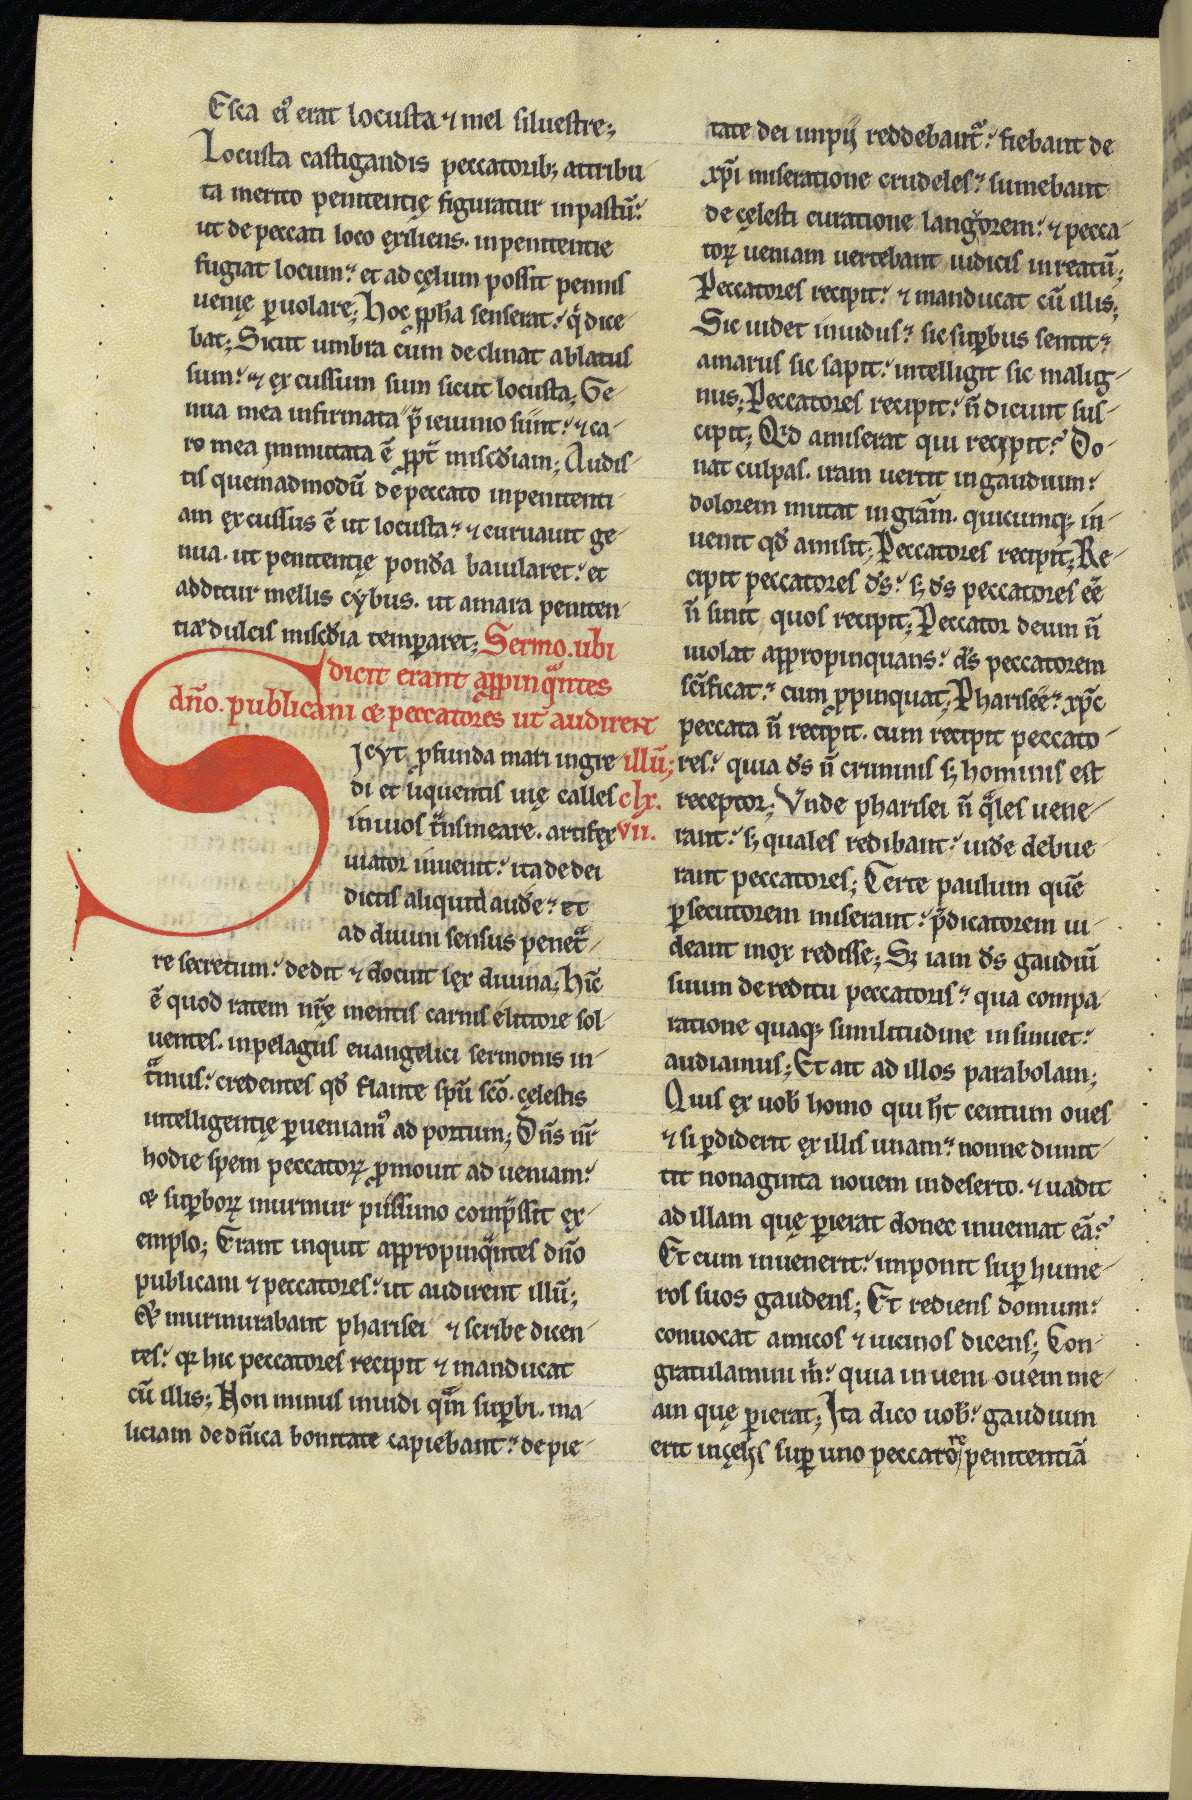 Esca ei᷒ erat locusta ⁊ mel siluestre;
Locusta castigandis peccatorib; attribu
ta merito penitentię figuratur in pastū:
ut de peccati loco exiliens. in penitentie
fugiat locum: et ad cęlum possit pennis
uenię ꝑuolare; Hoc ꝓpha senserat: q̄ dice
bat; Sicut umbra cum declinat ablatus
sum: ⁊ excussum sum sicut locusta; Ge
nua mea infirmata p̄ ieiunio sunt: ⁊ ca
ro mea immutata ē ꝓpt̄ misc̄diam; Audis
tis quemadmodū de peccato in penitenti
am excussus ē ut locusta: ⁊ curuauit ge
nua. ut penitentię pond̄a baiularet: et
additur mellis cybus. ut amara peniten
tiæ dulcis misc̄dia temꝑaret; Sermo. ubi
dicit erant aꝓpinq̄ntes
dn̄o. publicani & peccatores ut audirent
illū;
Sicyt ꝓfunda maris ingre
di et liquentis uię calles clx.
inuios t̄nsmeare. artifex vii.
uiator inuenit: ita de dei
dictis aliquid aud̄e: et
ad diuini sensus penet̄
re secretum: dedit ⁊ docuit lex diuina; Hīc
ē quod ratem nr̄ę mentis carnis e littore sol
uentes. in pelagus euangelici sermonis in
t̄mus: credentes qd̄ flante spū scō. cęlestis
intelligentię ꝑueniam᷒ ad portum; Dn̄s nr̄
hodie spem peccatorꝝ ꝓmouit ad ueniam:
& suꝑborꝝ murmur piissimo comp̄ssit ex
emplo; Erant inquit apꝓpinq̄ntes dn̄o
publicani ⁊ peccatores: ut audirent illū;
Et murmurabant pharisei ⁊ scribe dicen
tes: qꝛ hic peccatores recipit ⁊ manducat
cū illis; Non minus inuidi qm̄ suꝑbi. ma
liciam de dn̄ica bonitate capiebant: de pie
tate dei impii reddebant᷒: fiebant de
xp̄i miseratione crudeles: sumebant
de cęlesti curatione langorem: ⁊ pecca
torꝝ ueniam uertebant iudicis in reatū;
Peccatores recipit: ⁊ manducat cū illis;
Sic uidet inuidus: sic suꝑbus sentit:
amarus sic sapit: intelligit sic malig
nus; Peccatores recipit: n̄ dicunt sus
cipit; Qd̄ amiserat qui recipit: Do
nat culpas. iram uertit in gaudium:
dolorem mutat in grām. quicumq; in
uenit qd̄ amisit; Peccatores recipit; Re
cipit peccatores d̄s: s; d̄s peccatores eē
n̄ sinit quos recipit; Peccator deum n̄
uiolat apꝓpinquans: d̄s peccatorem
sc̄ificat: cum ꝓpinquat; Pharisee: xp̄c
peccata n̄ recipit. cum recipit peccato
res: quia d̄s n̄ criminis s; hominis est
receptor; Vnde pharisei n̄ q̄les uene
rant: s; quales redibant: uid̄e debue
rant peccatores; Certe paulum quē
ꝑsecutorem miserant: p̄dicatorem ui
deant mox redisse; Sꝫ iam d̄s gaudiū
suum de reditu peccatoris: qua compa
ratione quaq; similitudine insinuet:
audiamus; Et ait ad illos parabolam;
Quis ex uob̄ homo qui h̄t centum oues
⁊ si ꝑdiderit ex illis unam: nonne dimit
tit nonaginta nouem in deserto. ⁊ uadit
ad illam quę ꝑierat donec inueniat eā:
Et cum inuenerit: imponit suꝑ hume
ros suos gaudens; Et rediens domum:
conuocat amicos ⁊ uicinos dicens; Con
gratulamini m̄: quia inueni ouem me
am quę ꝑierat; Ita dico uob̄: gaudium
erit in cęlis suꝑ uno peccatore penitentiā